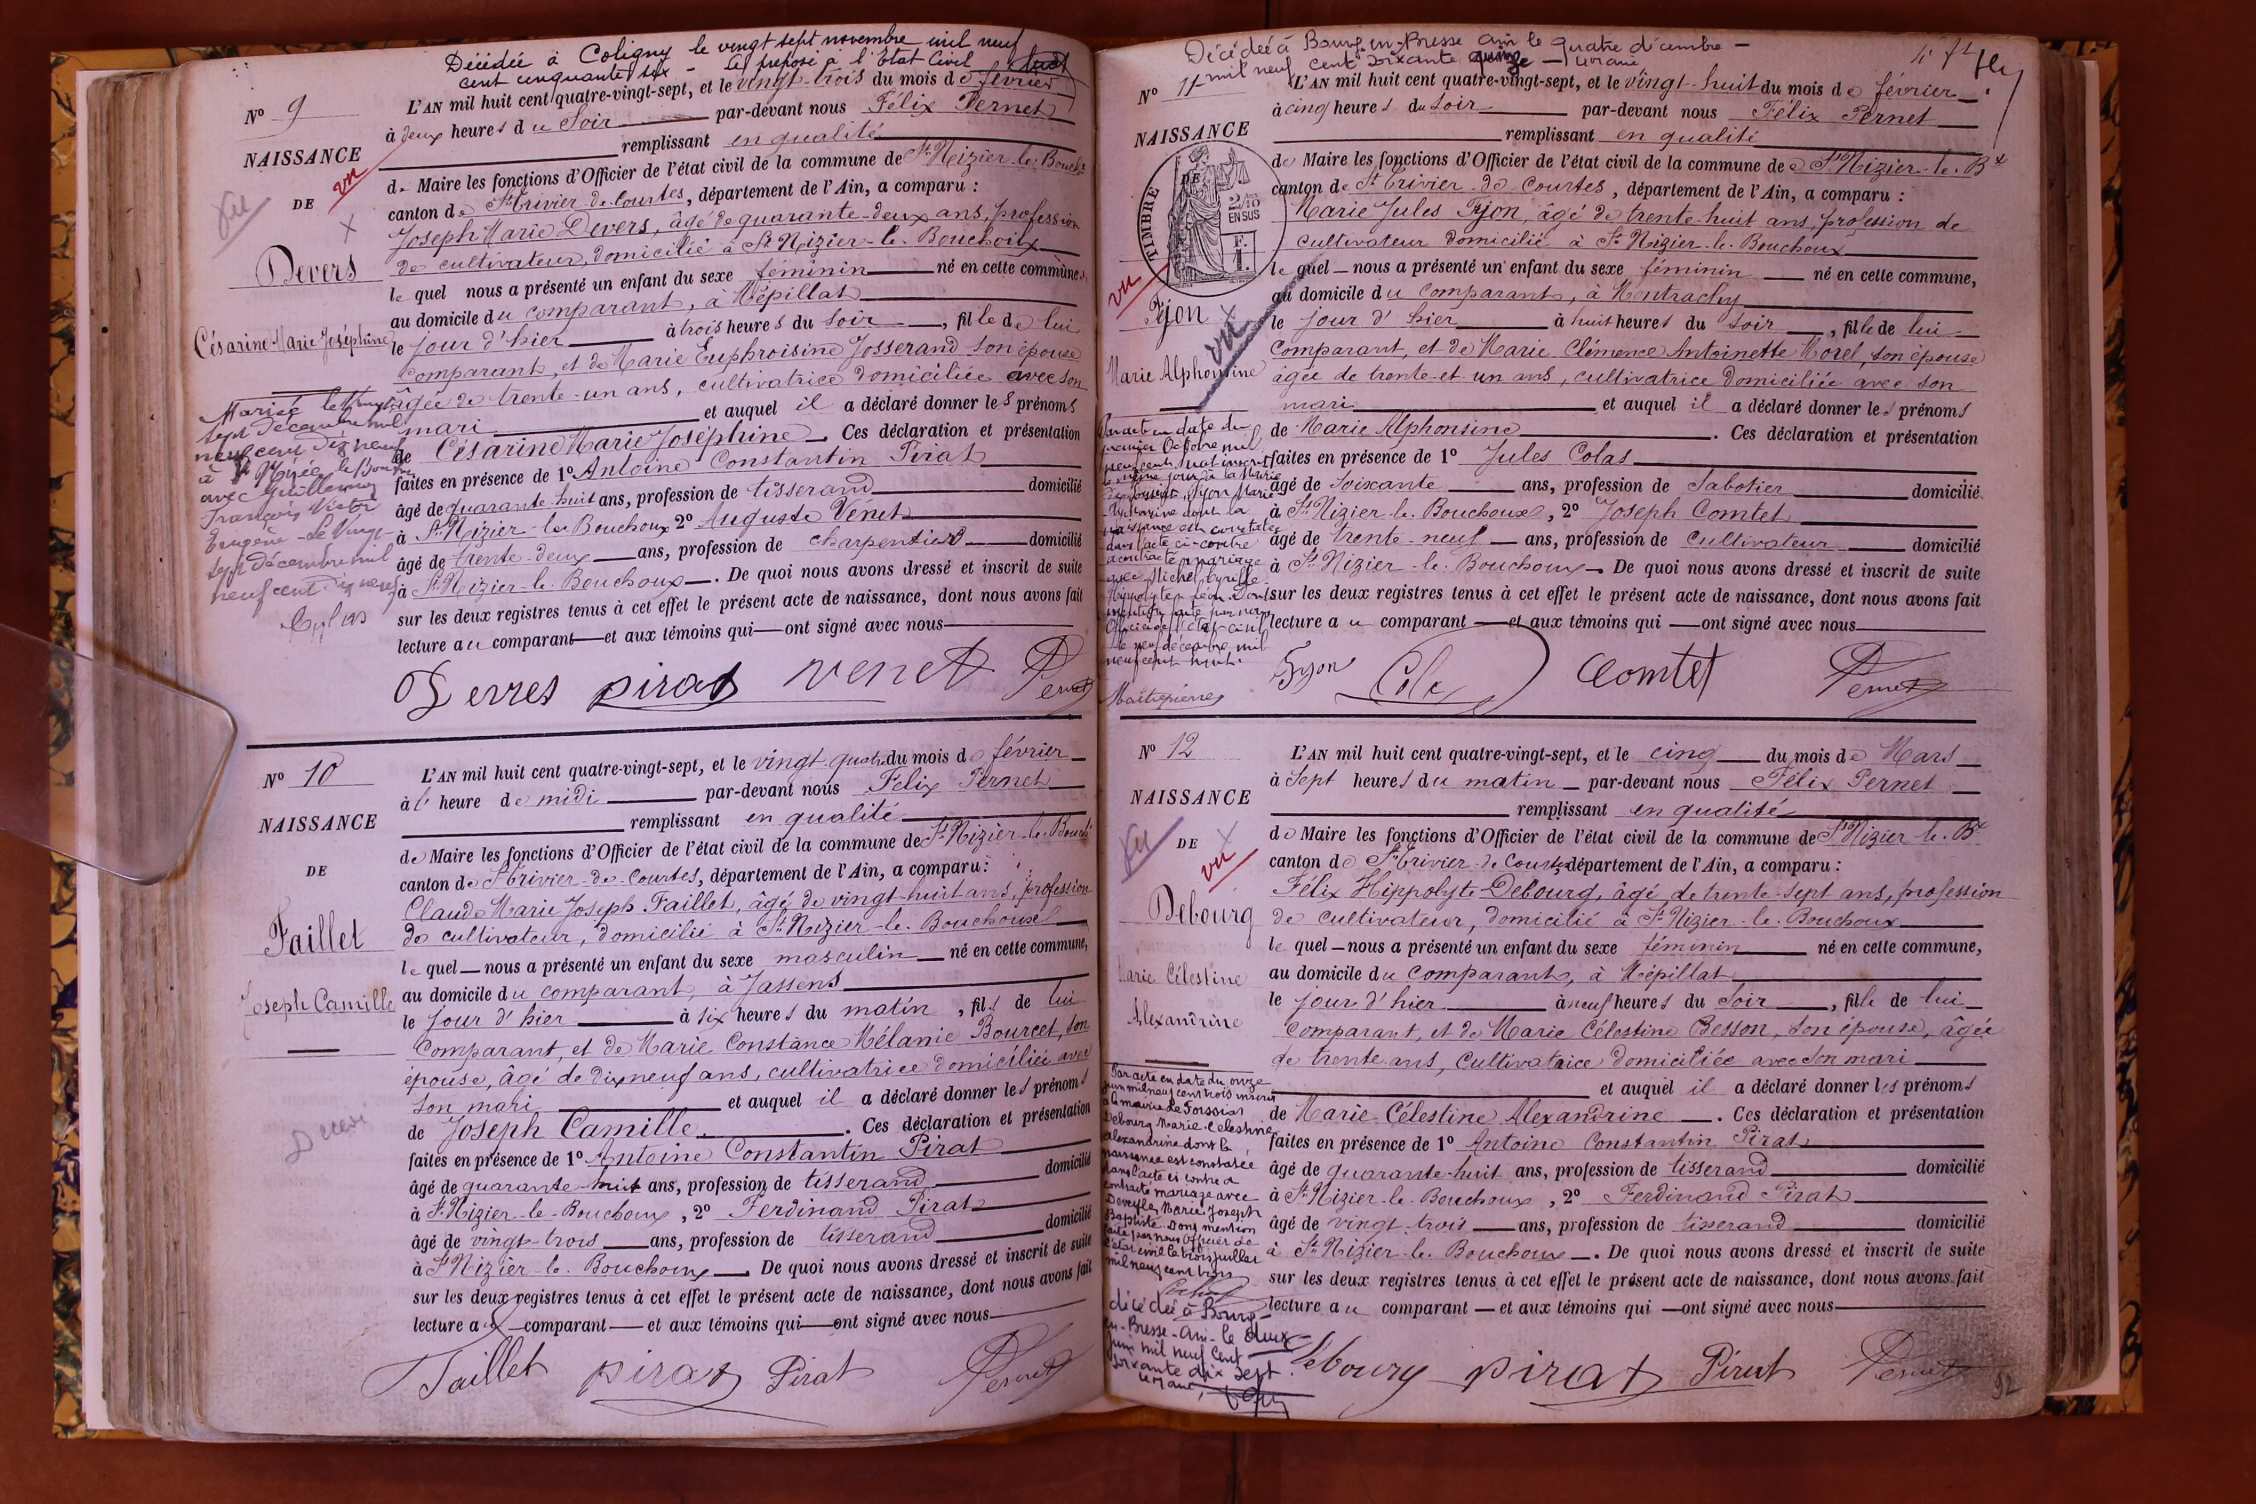 Décédée à Coligny le vingt sept novembre mil neuf
cent cinquante six - Le préposé à l'Etat Civil
N° 9
NAISSANCE
DE
vu
Devers
Césarine Marie Joséphine
L'AN mil huit cent quatre-vingt-sept, et le vingt-trois du mois de février
à deux heures du Soir par-devant nous Félix Pernet
remplissant en qualité
de Maire les fonctions d'Officier de l'état civil de la commune de St Nizier-le-Boucht
canton de St Trivier-de-Courtes, département de l'Ain, a comparu :
Joseph Marie Devers, âgé de quarante-deux ans, profession
de cultivateur, domicilié à St Nizier-le-Bouchoux
le quel nous a présenté un enfant du sexe féminin né en cette commune,
au domicile du comparant, à Mépillat
le jour d'hier à trois heures du Soir, fille de lui
comparant, et de Marie Euphroisine Josserand son épouse
âgée de trente-un ans, cultivatrice domiciliée avec son
mari et auquel il a déclaré donner les prénoms
de Césarine Marie Joséphine. Ces déclaration et présentation
faites en présence de 1° Antoine Constantin Pirat
âgé de quarante huit ans, profession de tisserand domicilié
à St Nizier-le-Bouchoux 2° Auguste Venet
âgé de trente-deux ans, profession de charpentier domicilié
à St Nizier-le-Bouchoux. De quoi nous avons dressé et inscrit de suite
sur les deux registres tenus à cet effet le présent acte de naissance, dont nous avons fait
lecture au comparant et aux témoins qui ont signé avec nous
Mariée le vingt
sept décembre mil
neuf cent dix neuf
à St Nizier le Bouchoux
avec Guillermin
François Victor
Eugène - Le vingt-
sept décembre mil
neuf cent dix neuf
Devers pirat venet Pernet
N° 10
NAISSANCE
DE
Faillet
Joseph Camille
L'AN mil huit cent quatre-vingt-sept, et le vingt-quatre du mois de février
à l' heure de midi par-devant nous Félix Pernet
remplissant en qualité
de Maire les fonctions d'Officier de l'état civil de la commune de St Nizier-le-Boucht
canton de St Trivier-de-Courtes, département de l'Ain, a comparu :
Claude Marie Joseph Faillet, âgé de vingt-huit ans, profession
de cultivateur, domicilié à St Nizier-le-Bouchoux
le quel nous a présenté un enfant du sexe masculin né en cette commune,
au domicile du comparant, à Jassens
le jour d'hier à six heures du matin, fils de lui
comparant, et de Marie Constance Mélanie Bourcet, son
épouse, âgé de dix neuf ans, cultivatrice domiciliée avec
son mari et auquel il a déclaré donner les prénoms
de Joseph Camille. Ces déclaration et présentation
faites en présence de 1° Antoine Constantin Pirat
âgé de quarante-huit ans, profession de tisserand domicilié
à St Nizier-le-Bouchoux, 2° Ferdinand Pirat
âgé de vingt-trois ans, profession de tisserand domicilié
à St Nizier-le-Bouchoux. De quoi nous avons dressé et inscrit de suite
sur les deux registres tenus à cet effet le présent acte de naissance, dont nous avons fait
lecture au comparant et aux témoins qui ont signé avec nous
Faillet pirat Pirat Pernet
Décédée à Bourg-en-Bresse Ain le quatre décembre -
mil neuf cent soixante quinze -
N° 11
NAISSANCE
DE
TIMBRE
2/10
EN SUS
F.
1.
vu
Fyon
vu
Marie Alphonsine
L'AN mil huit cent quatre-vingt-sept, et le vingt-huit du mois de février
à cinq heures du soir par-devant nous Félix Pernet
remplissant en qualité
de Maire les fonctions d'Officier de l'état civil de la commune de St Nizier-le-Bx
canton de St Trivier-de-Courtes, département de l'Ain, a comparu :
Marie Jules Fyon, âgé de trente-huit ans, profession de
cultivateur domicilié à St Nizier-le-Bouchoux
le quel nous a présenté un enfant du sexe féminin né en cette commune,
au domicile du comparant, à Montrachy
le jour d'hier à huit heures du Soir, fille de lui
comparant, et de Marie Clémence Antoinette Morel, son épouse
âgée de trente et un ans, cultivatrice domiciliée avec son
mari et auquel il a déclaré donner les prénoms
de Marie Alphonsine. Ces déclaration et présentation
faites en présence de 1° Jules Colas
âgé de soixante ans, profession de Sabotier domicilié
à St Nizier-le-Bouchoux, 2° Joseph Comtet
âgé de trente-neuf ans, profession de cultivateur domicilié
à St Nizier-le-Bouchoux. De quoi nous avons dressé et inscrit de suite
sur les deux registres tenus à cet effet le présent acte de naissance, dont nous avons fait
lecture au comparant et aux témoins qui ont signé avec nous
Par acte en date du
premier Octobre mil
neuf cent huit inscrit
le même jour à la Mairie
Fyon Marie
Alphonsine dont la
naissance est constatée
dans l'acte ci-contre
a contracté mariage
avec Michel
Hippolyte Léon. Dont
mention faite par nous
Officier de l'état-civil
le neuf décembre mil
neuf cent huit.
Maitrepierre
Fyon Colas Comtet Pernet
N° 12
NAISSANCE
DE
vu
Debourg
Marie Célestine
Alexandrine
L'AN mil huit cent quatre-vingt-sept, et le cinq du mois de Mars
à Sept heures du matin par-devant nous Félix Pernet
remplissant en qualité
de Maire les fonctions d'Officier de l'état civil de la commune de St Nizier-le-Bx
canton de St Trivier-de-Courtes, département de l'Ain, a comparu :
Félix Hippolyte Debourg, âgé de trente-sept ans, profession
de cultivateur, domicilié à St Nizier-le-Bouchoux
le quel nous a présenté un enfant du sexe féminin né en cette commune,
au domicile du comparant, à Mépillat
le jour d'hier à neuf heures du Soir, fille de lui
comparant, et de Marie Célestine Besson, son épouse, âgée
de trente ans, cultivatrice domiciliée avec son mari
et auquel il a déclaré donner les prénoms
de Marie Célestine Alexandrine. Ces déclaration et présentation
faites en présence de 1° Antoine Constantin Pirat
âgé de quarante-huit ans, profession de tisserand domicilié
à St Nizier-le-Bouchoux, 2° Ferdinand Pirat
âgé de vingt-trois ans, profession de tisserand domicilié
à St Nizier-le-Bouchoux. De quoi nous avons dressé et inscrit de suite
sur les deux registres tenus à cet effet le présent acte de naissance, dont nous avons fait
lecture au comparant et aux témoins qui ont signé avec nous
Par acte en date du onze
juin mil neuf cent trois inscrit
à la mairie de
Debourg Marie-Célestine
Alexandrine dont la
naissance est constatée
dans l'acte ci contre a
contracté mariage avec
Marie Joseph
Baptiste. Dont mention
faite par nous Officier de
l'état civil le trois juillet
mil neuf cent trois
décédée à Bourg-
en-Bresse-Ain-le deux
juin mil neuf cent
soixante dix sept
Debourg pirat Pirat Pernet
92